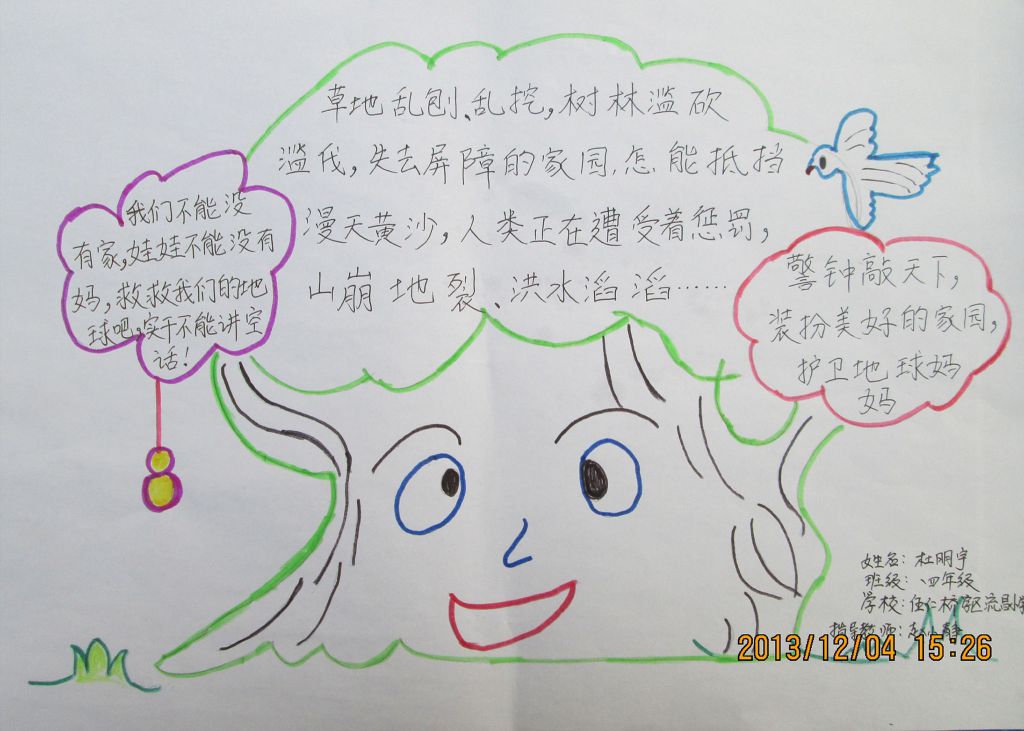 草地乱刨、乱挖，树林滥砍
滥伐，失去屏障的家园，怎能抵挡
漫天黄沙，人类正在遭受着惩罚，
山崩地裂、洪水滔滔……
我们不能没
有家，娃娃不能没有
妈，救救我们的地
球吧，实干不能讲空
话！
警钟敲天下，
装扮美好的家园，
护卫地球妈
妈
姓名：杜明宇
班级：四年级
学校：任仁桥
指导教师：赵小静
2013/12/04 15:26